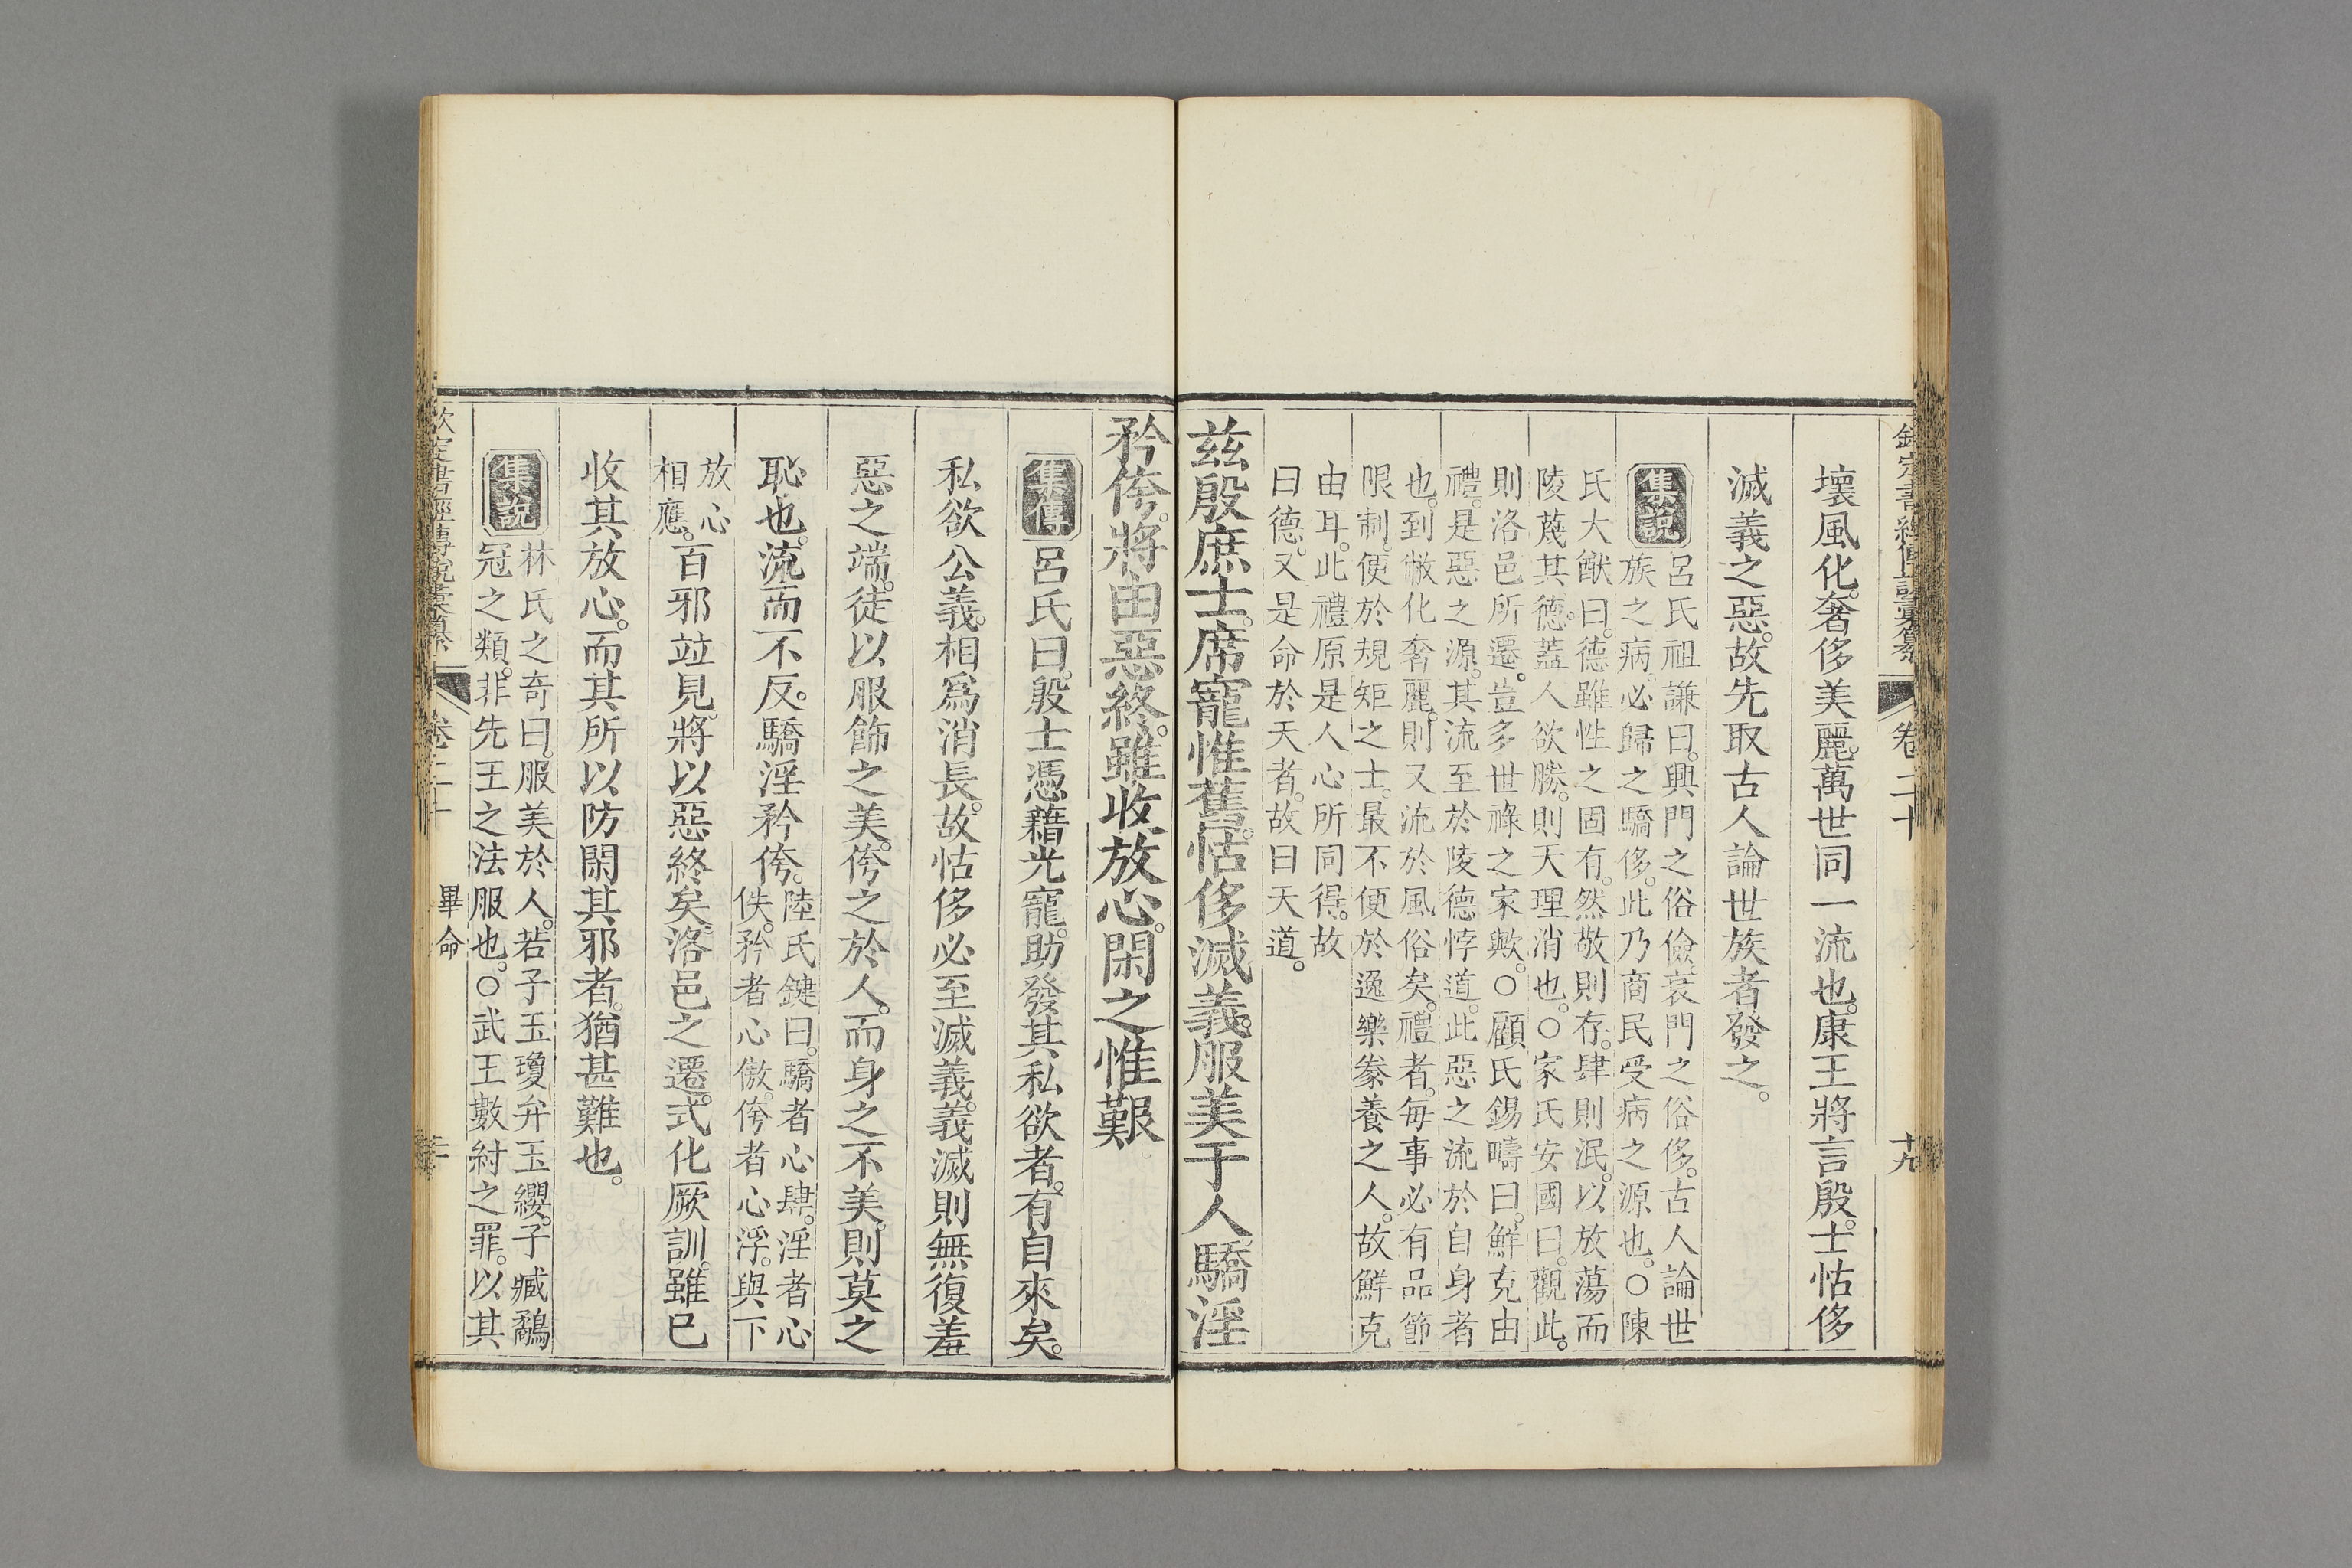 欽定書經傳說彙纂 卷二十 十九
壞風化。奢侈美麗。萬世同一流也。康王將言殷士怙侈
滅義之惡。故先取古人論世族者發之。
集說 呂氏祖謙曰。興門之俗儉。衰門之俗侈。古人論世
族之病。必歸之驕侈。此乃商民受病之源也。○陳
氏大猷曰。德雖性之固有。然敬則存。肆則泯。以放蕩而
陵蔑其德。蓋人欲勝。則天理消也。○家氏安國曰。觀此。
則洛邑所遷。豈多世祿之家歟。○顧氏錫疇曰。鮮克由
禮。是惡之源。其流至於陵德悖道。此惡之流於自身者
也。到敝化奢麗。則又流於風俗矣。禮者。每事必有品節
限制。便於規矩之士。最不便於逸樂豢養之人。故鮮克
由耳。此禮原是人心所同得。故
曰德。又是命於天者。故曰天道。
茲殷庶士。席寵惟舊。怙侈滅義。服美于人。驕淫
矜侉。將由惡終。雖收放心。閑之惟艱。
集傳 呂氏曰。殷士憑藉光寵。助發其私欲者。有自來矣。
私欲公義。相爲消長。故怙侈必至滅義。義滅則無復羞
惡之端。徒以服飾之美。侉之於人。而身之不美。則莫之
恥也。流而不反。驕淫矜侉。陸氏鍵曰。驕者心肆。淫者心
佚。矜者心傲。侉者心浮。與下
放心
相應。百邪竝見。將以惡終矣。洛邑之遷。式化厥訓。雖已
收其放心。而其所以防閑其邪者。猶甚難也。
集說 林氏之奇曰。服美於人。若子玉瓊弁玉纓。子臧鷸
冠之類。非先王之法服也。○武王數紂之罪。以其
欽定書經傳說彙纂 卷二十 畢命